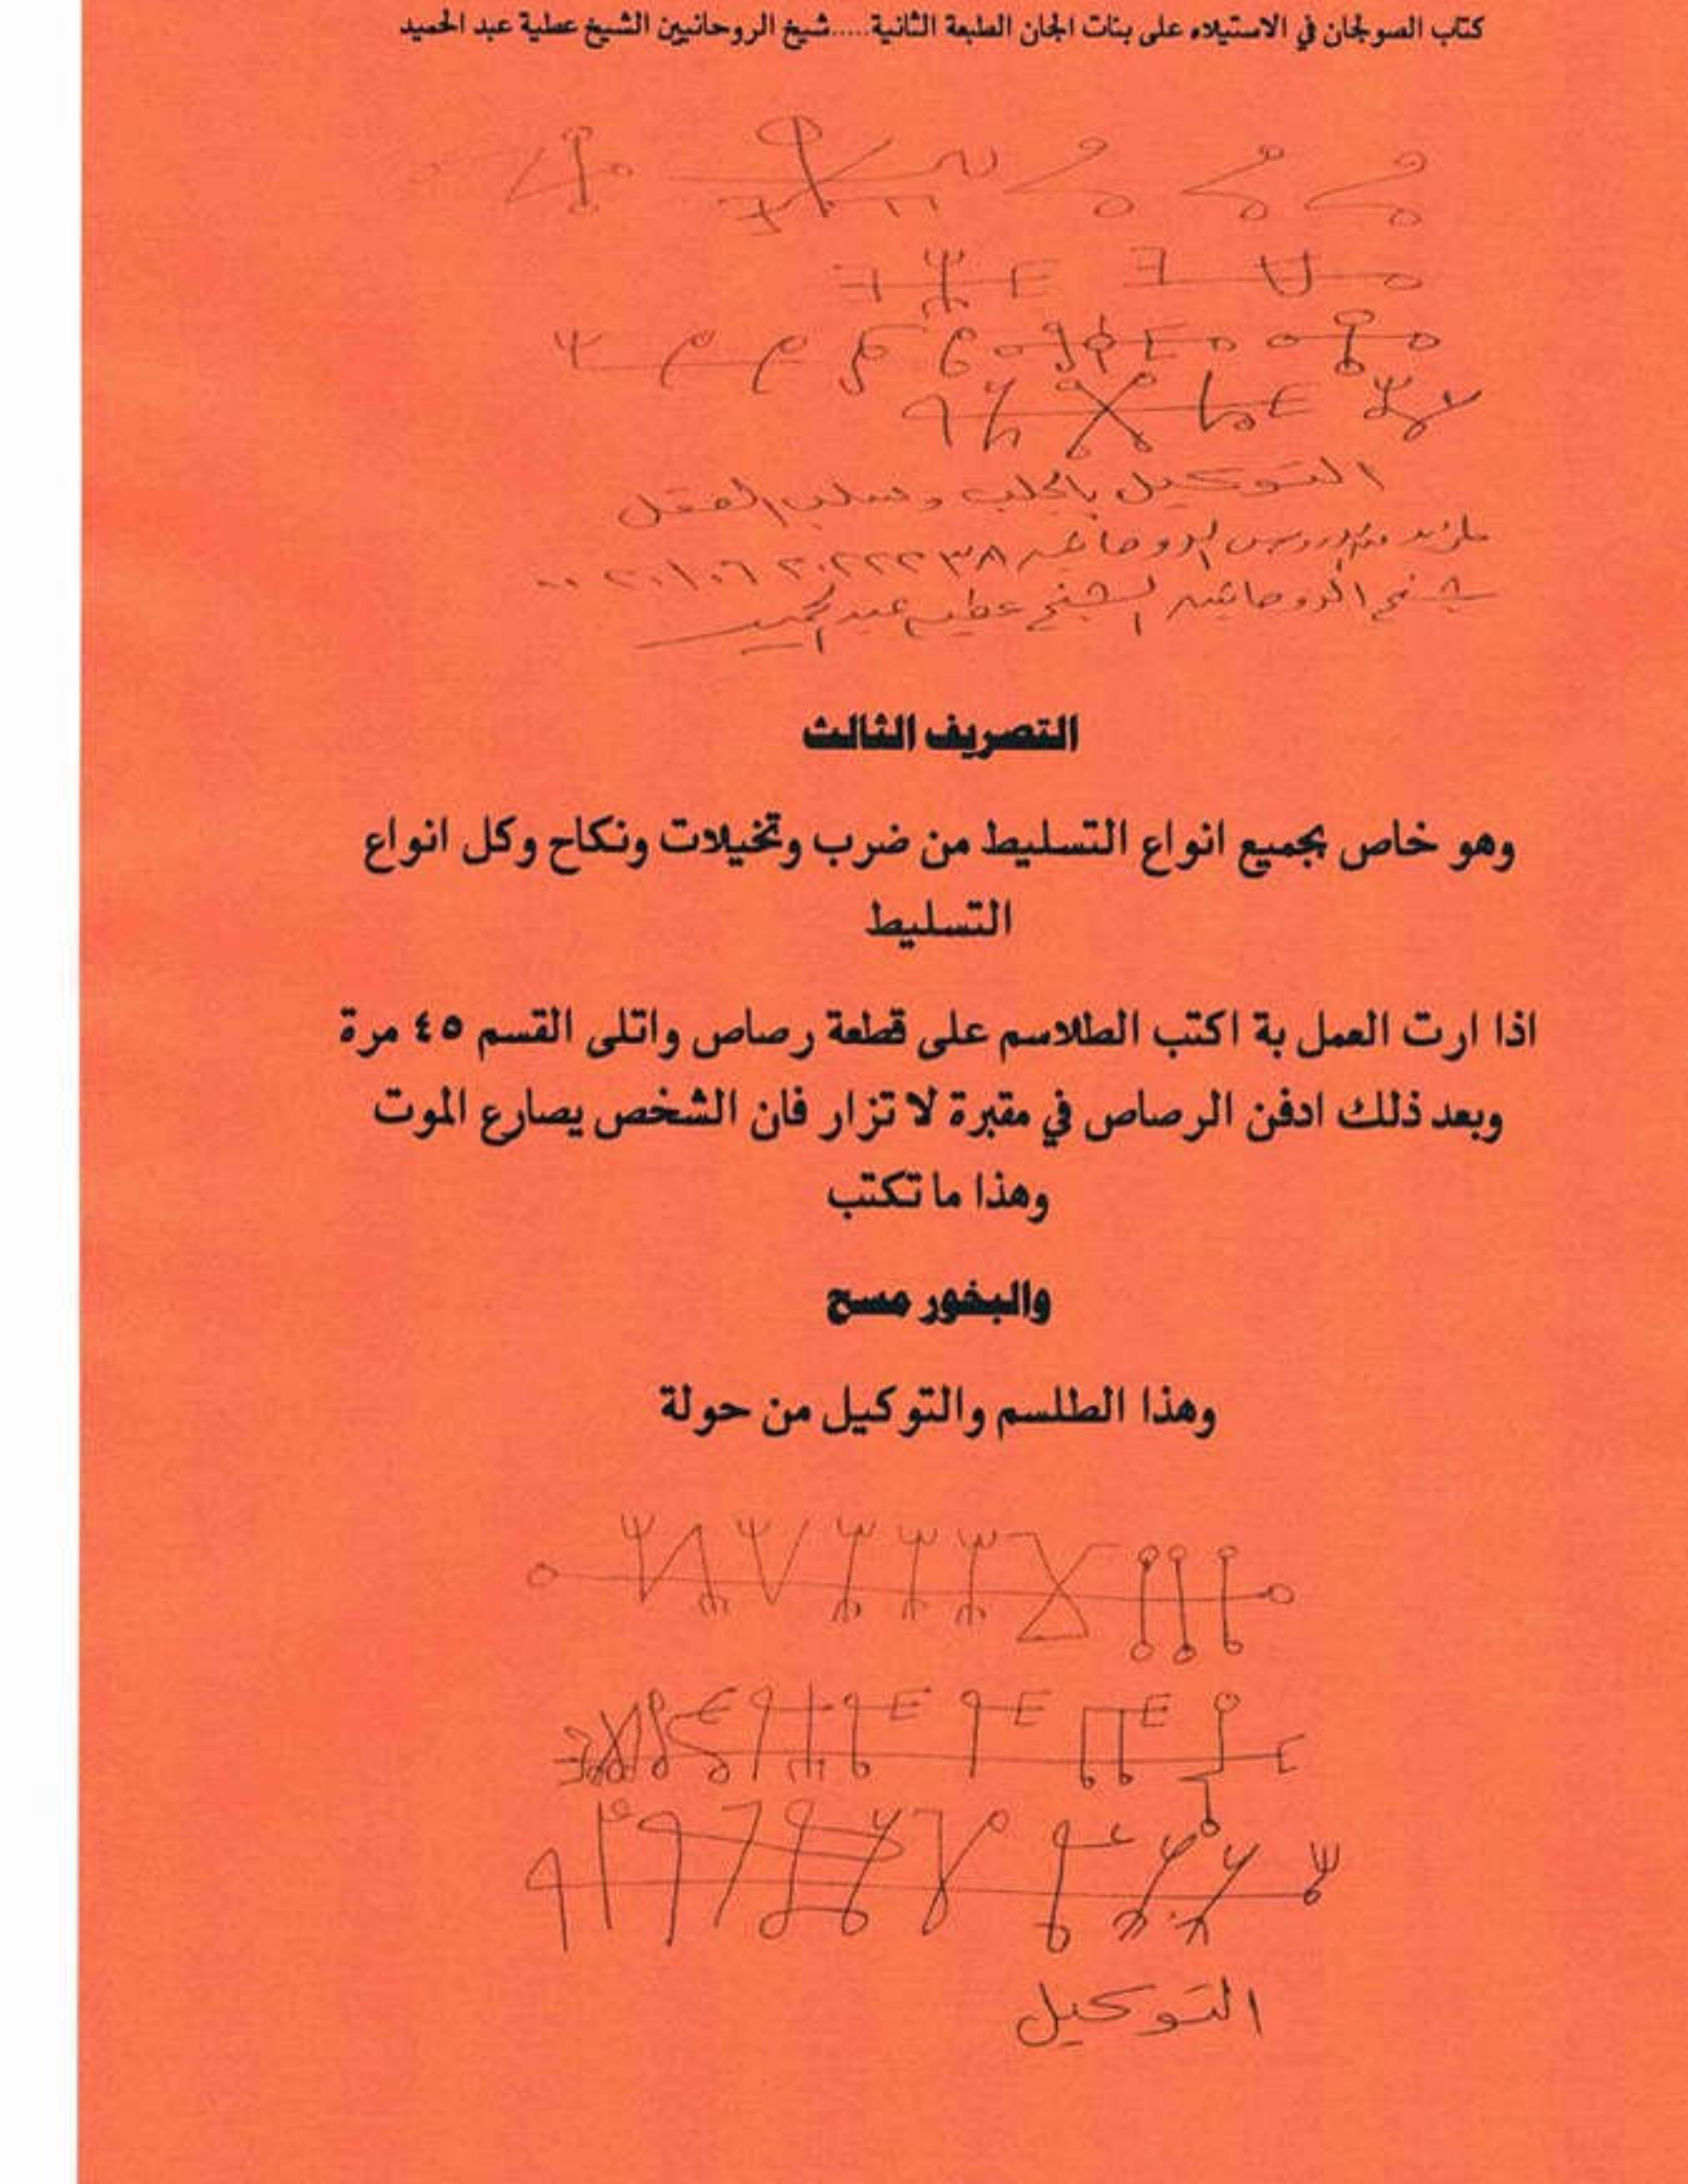 كتاب الصولجان في الاستيلاء على بنات الجان الطبعة الثانية.....شيخ الروحانيين الشيخ عطية عبد الحميد
التوكيل بالجلب وسلب العقل
شيخ الروحانيين الشيخ عطيه عبد الحميد
التصريف الثالث
وهو خاص بجميع انواع التسليط من ضرب وتخيلات ونكاح وكل انواع
التسليط
اذا ارت العمل بة اكتب الطلاسم على قطعة رصاص واتلى القسم ٤٥ مرة
وبعد ذلك ادفن الرصاص في مقبرة لا تزار فان الشخص يصارع الموت
وهذا ما تكتب
والبخور مسح
وهذا الطلسم والتوكيل من حولة
التوكيل